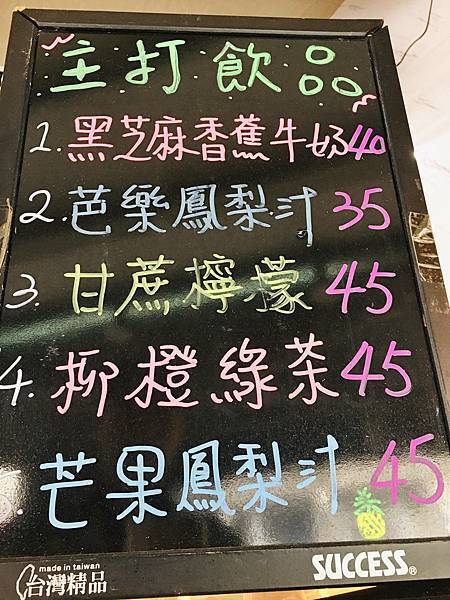 主打飲品
1. 黑芝麻香蕉牛奶 40
2. 芭樂鳳梨汁 35
3. 甘蔗檸檬 45
4. 柳橙綠茶 45
芒果鳳梨汁 45
made in taiwan
台灣精品
SUCCESS®